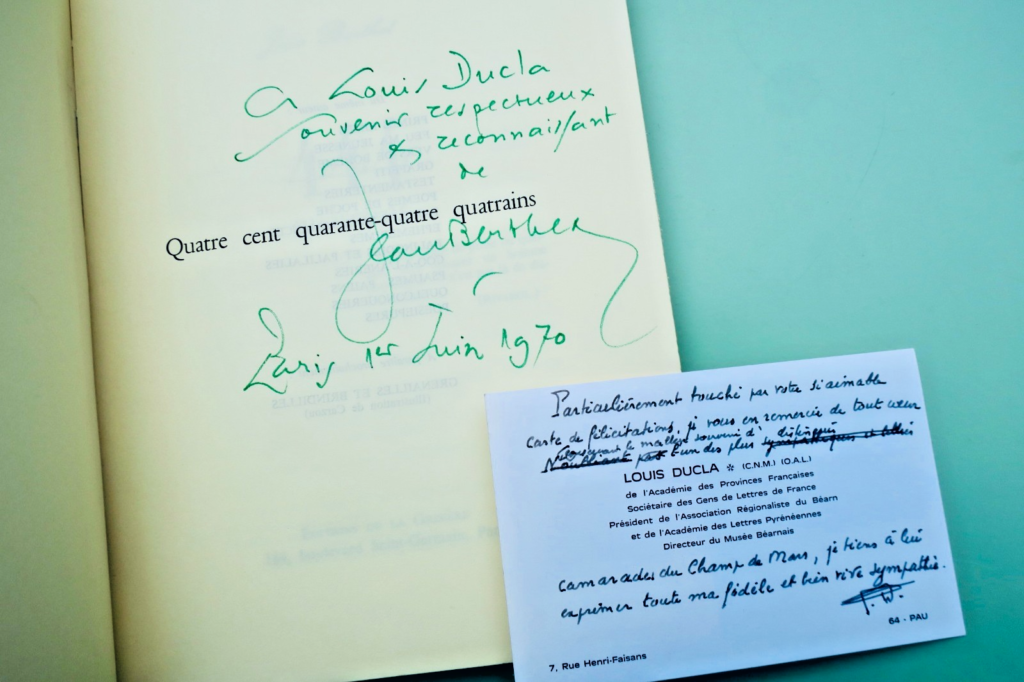 A Louis Ducla
Souvenir respectueux
& reconnaissant
de
Quatre cent quarante-quatre quatrains
Jean Berthet
Paris 1er Juin 1970
Particulièrement touché par votre si aimable
carte de félicitations, je vous en remercie de tout cœur
le meilleur souvenir d'
l'un des plus distingués
LOUIS DUCLA * (C.N.M.) (O.A.L.)
de l'Académie des Provinces Françaises
Sociétaire des Gens de Lettres de France
Président de l'Association Régionaliste du Béarn
et de l'Académie des Lettres Pyrénéennes
Directeur du Musée Béarnais
camarades du Champ de Mars, je tiens à lui
exprimer toute ma fidèle et bien vive sympathie.
64 - PAU
7, Rue Henri-Faisans